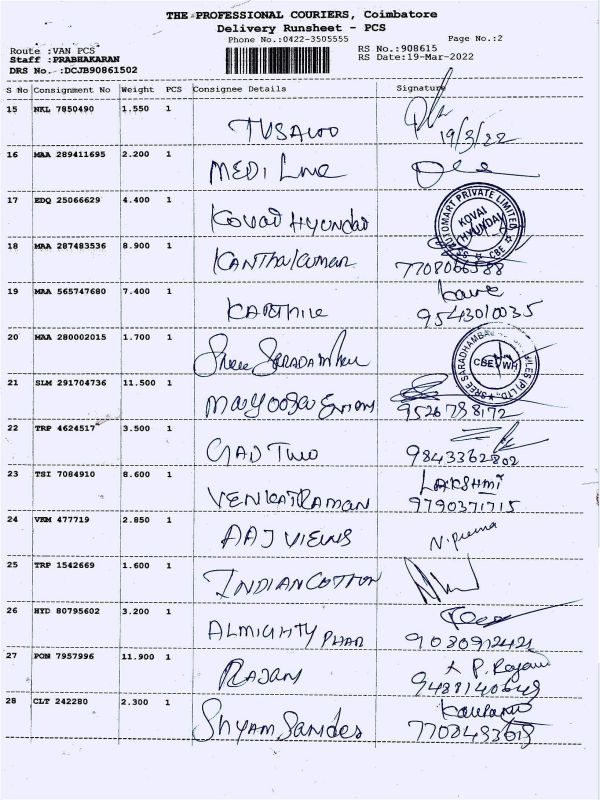 THE PROFESSIONAL COURIERS, Coimbatore
Delivery Runsheet - PCS
Phone No.:0422-3505555 Page No.:2
Route :VAN PCS RS No.:908615
Staff :PRABHAKARAN RS Date:19-Mar-2022
DRS No. :DCJB90861502
S No Consignment No Weight PCS Consignee Details Signature
15 NKL 7850490 1.550 1
19/3/22
16 MAA 289411695 2.200 1
MEDI Line
17 EDQ 25066629 4.400 1
Kovai Hyundai
KOVAI HYUNDAI
AUTOMART PRIVATE LIMITED
CBE
18 MAA 287483536 8.900 1
Kanthakumar 7708066588
19 MAA 565747680 7.400 1
KARTHIK 9543010035
20 MAA 280002015 1.700 1
Sree Saradambal
SREE SARADHAMBAL
(P) LTD.
21 SLM 291704736 11.500 1
9526788172
22 TRP 4624517 3.500 1
9843362802
23 TSI 7084910 8.600 1
LAKSHMI
VENKATRAMAN 9790371715
24 VKM 477719 2.850 1
AAJ VIEWS
25 TRP 1542669 1.600 1
INDIAN COTTON
26 HYD 80795602 3.200 1
ALMIGHTY PHAR 9080912421
27 PON 7957996 11.900 1
P. Rajan
RAJAN
28 CLT 242280 2.300 1
Shyam Sarides